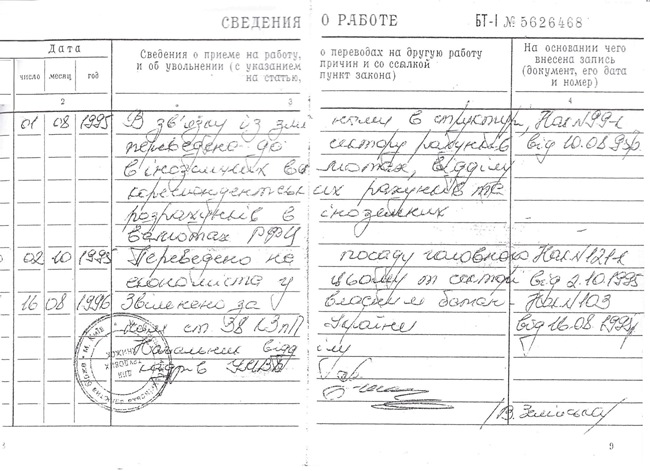 СВЕДЕНИЯ О РАБОТЕ БТ-I № 5626468
Дата
Сведения о приеме на работу, о переводах на другую работу На основании чего
и об увольнении (с указанием причин и со ссылкой внесена запись
на статью, пункт закона) (документ, его дата
число месяц год и номер)
2 3 4
01 08 1995 В зв'язку із змі нами в структурі, Нак №99-к
переведено до сектору рахунків від 10.08.95р.
в іноземних ва лютах, відділу
кореспондентськ их рахунків та
розрахунків в іноземних
валютах РФЦ
02 10 1995 Переведено на посаду головного Нак №121-к
економіста у цьому секторі від 2.10.1995
16 08 1996 Звільнено за власним бажан- Нак №103
ням ст 38 КЗпП України від 16.08.
Начальник відд ілу
кадрів
9